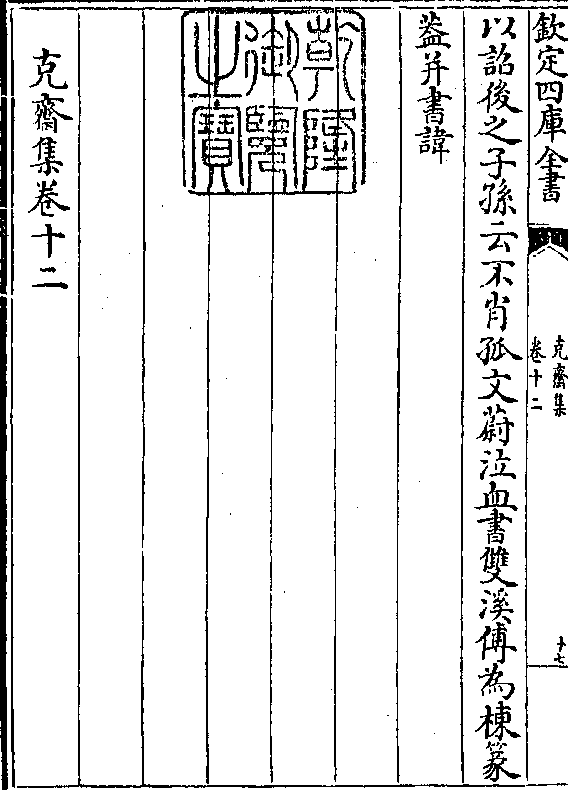 欽定四庫全書
克齋集
卷十二
十七
以詔後之子孫云不肖孤文蔚泣血書雙溪傅為棟篆
葢并書諱
乾隆
御覽
之寶
克齋集卷十二